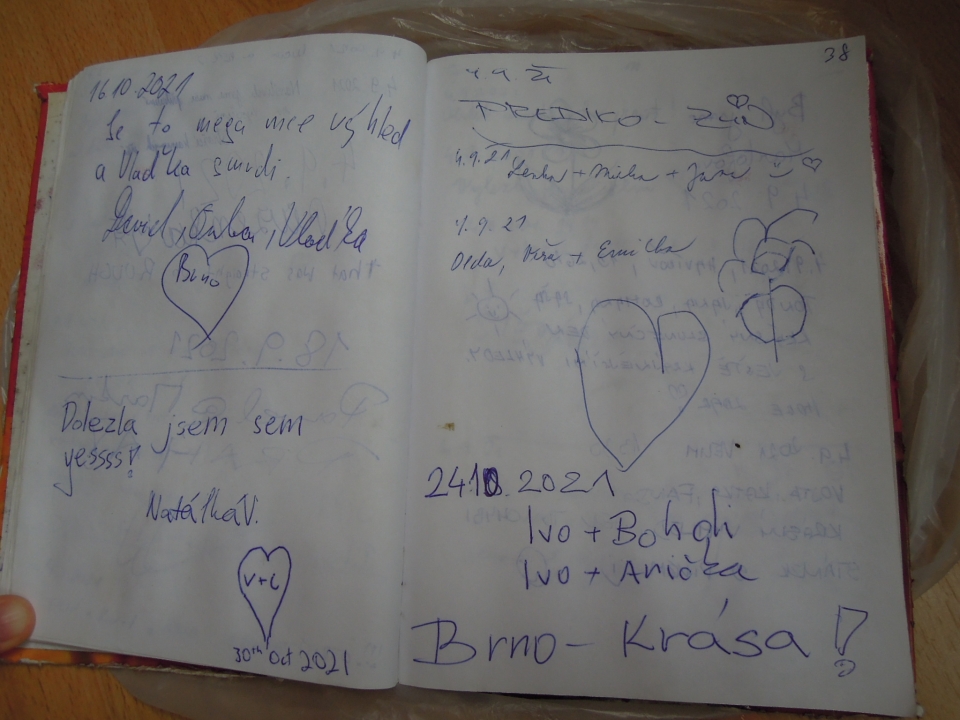 16.10.2021
Je to mega nice výhled
a Vlaďka smrdí.
David, Vlaďka
Brno
Dolezla jsem sem
yessss!
Natálka V.
V+L
30th Oct 2021
38
4.9.21 Lenka + Miška +
4.9.21
Deda, + Emička
24.10.2021
Ivo + Bohdi
Ivo + Anička
Brno - Krása!